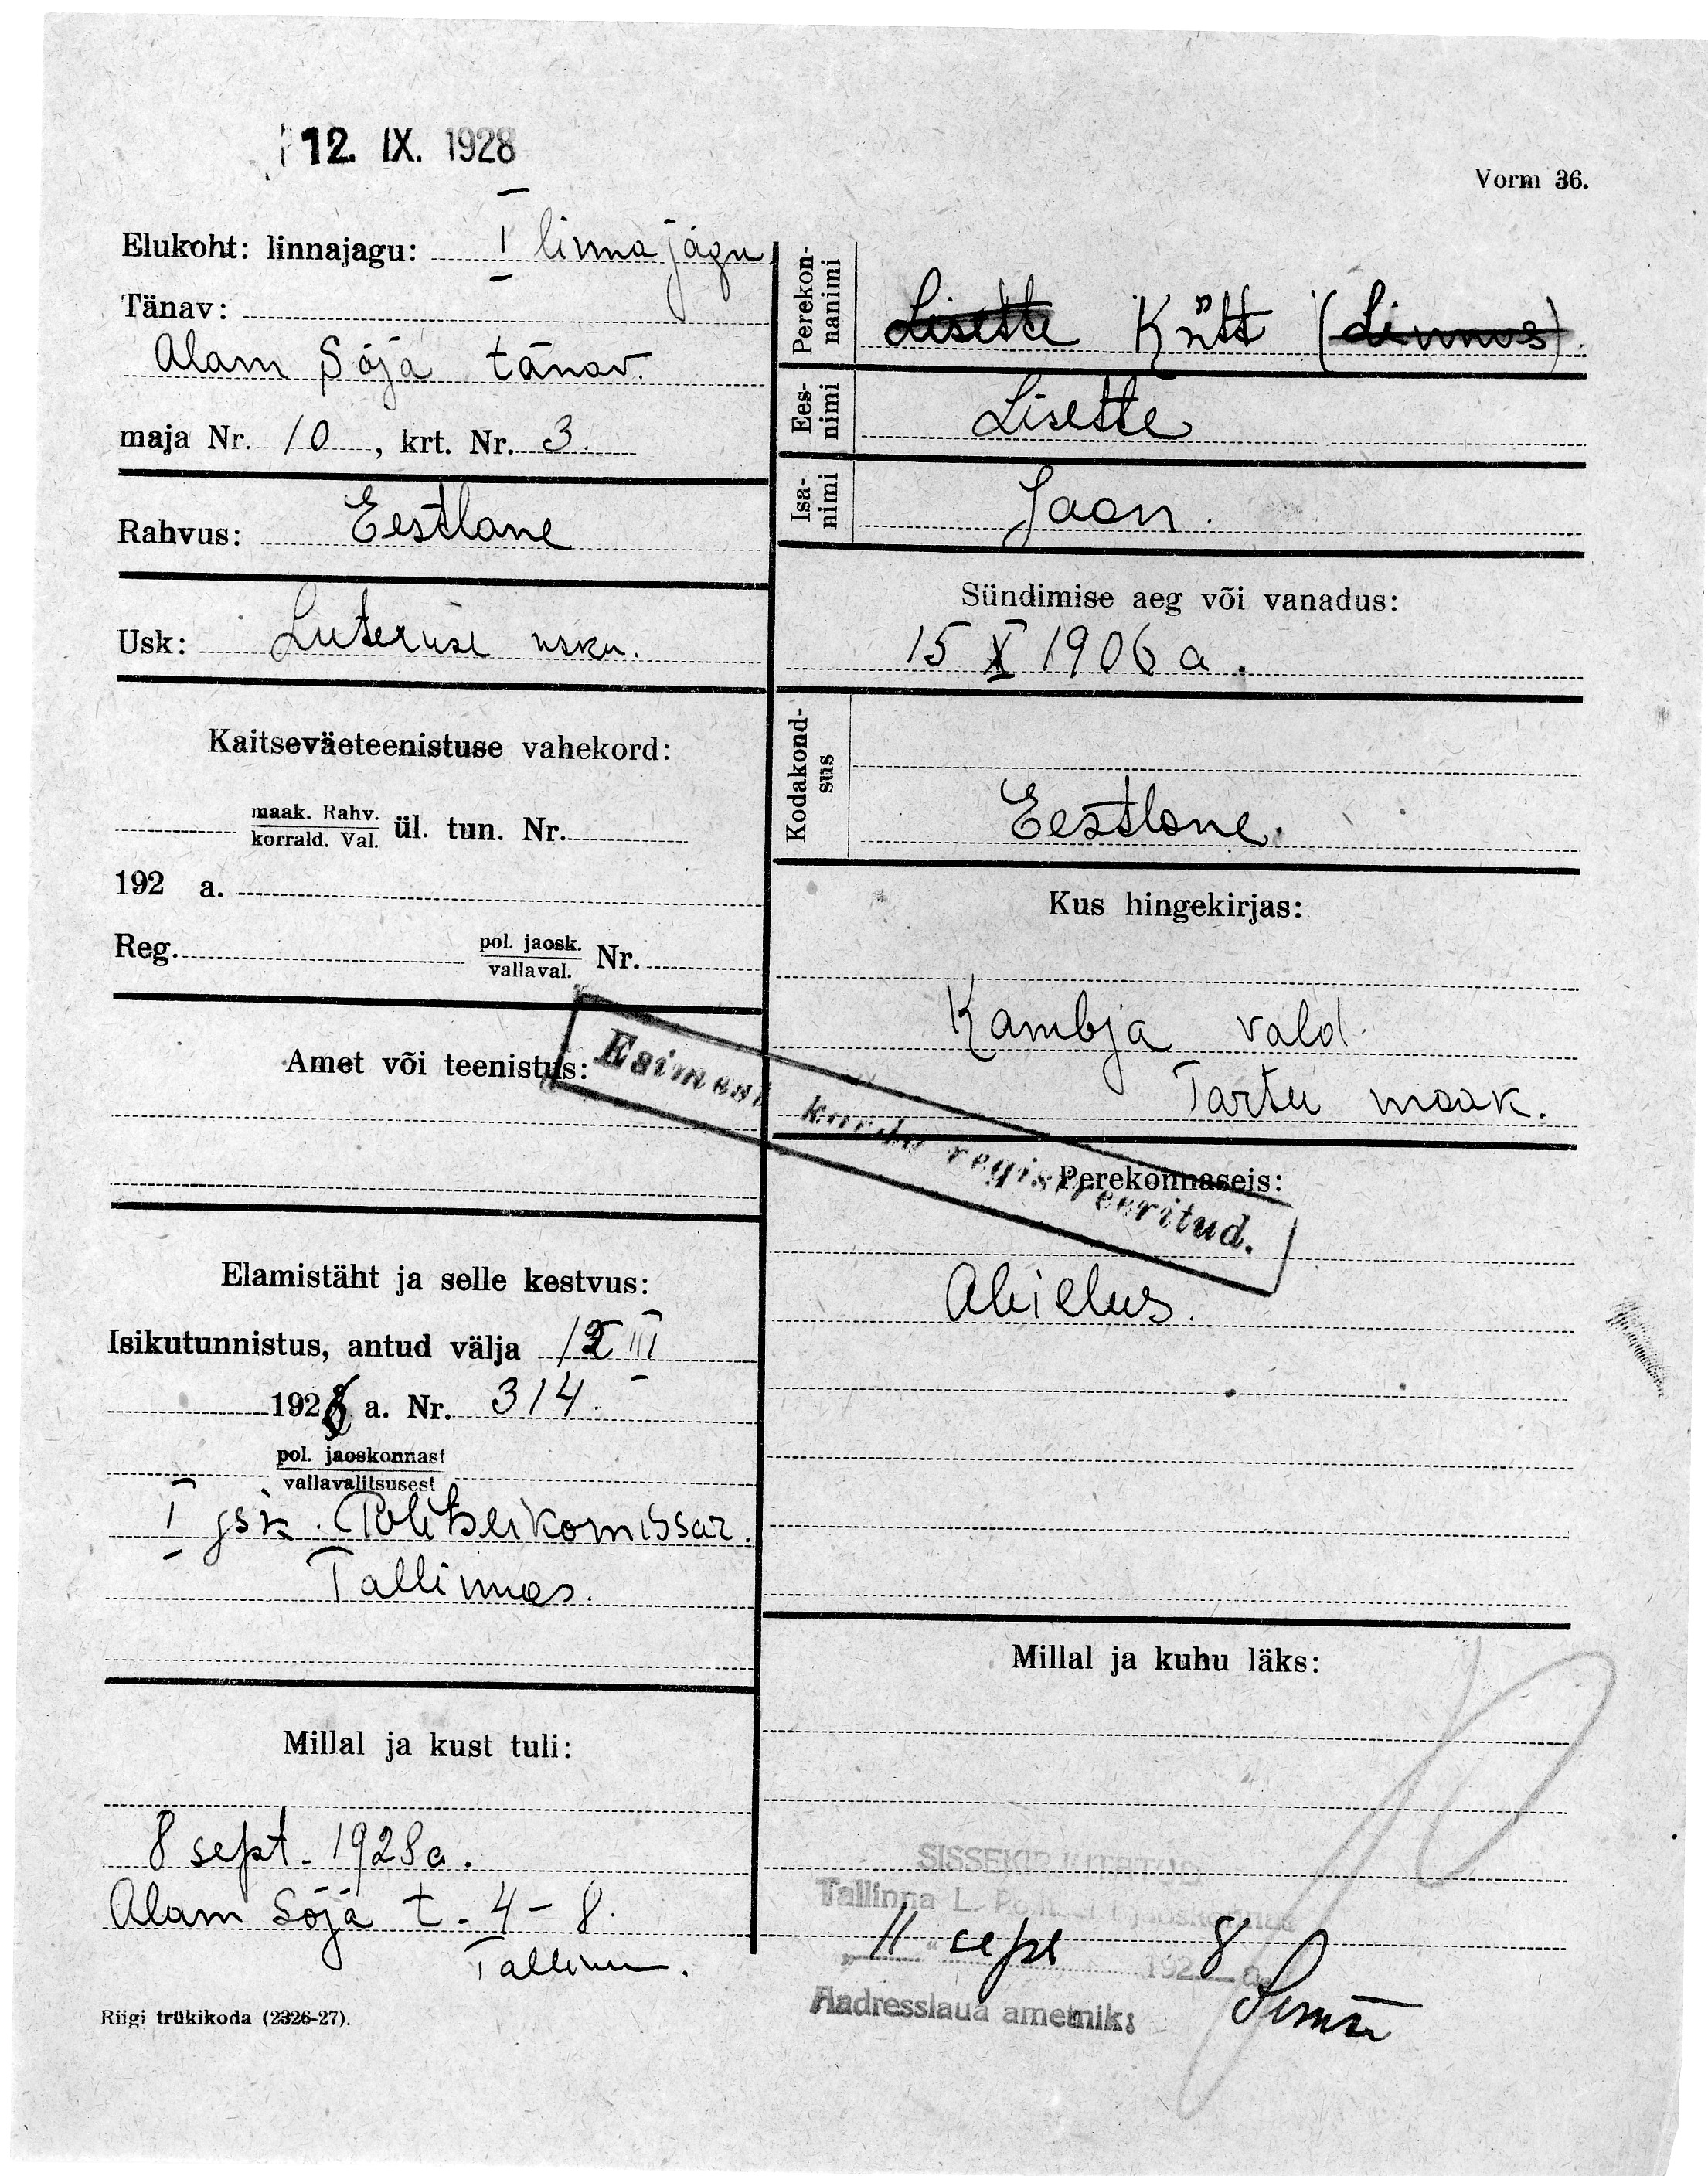 12. IX. 1928
Vorm 36.
Elukoht: linnajagu: I linna jagu
Tänav:
Alam Sõja tänav.
maja Nr. 10, krt. Nr. 3.
Rahvus: Eestlane
Usk: Luteruse usku.
Kaitseväeteenistuse vahekord:
maak. Rahv.
korrald. Val.
ül. tun. Nr.
192 a.
Reg. pol. jaosk.
vallaval.
Nr.
Amet või teenistus:
Esimest korda registreeritud.
Elamistäht ja selle kestvus:
Isikutunnistus, antud välja 12 III
1926 a. Nr. 314.
pol. jaoskonnast
vallavalitsusest
I jsk. Politseikomissar.
Tallinnas.
Millal ja kust tuli:
8 sept. 1928 a.
Alam Sõja t. 4-8.
Tallinn.
Riigi trükikoda (2326-27).
Perekon-
nanimi
Lisette Kütt (Linnus).
Ees-
nimi
Lisette
Isa-
nimi
Jaan.
Sündimise aeg või vanadus:
15 X 1906 a.
Kodakond-
sus
Eestlane.
Kus hingekirjas:
Kambja vald
Tartu maak.
Perekonnaseis:
Abielus.
Millal ja kuhu läks:
SISSEKIRJUTATUD
Tallinna L. Politsei I jaoskonnas
„11" sept 1928 a.
Aadresslaua ametnik: